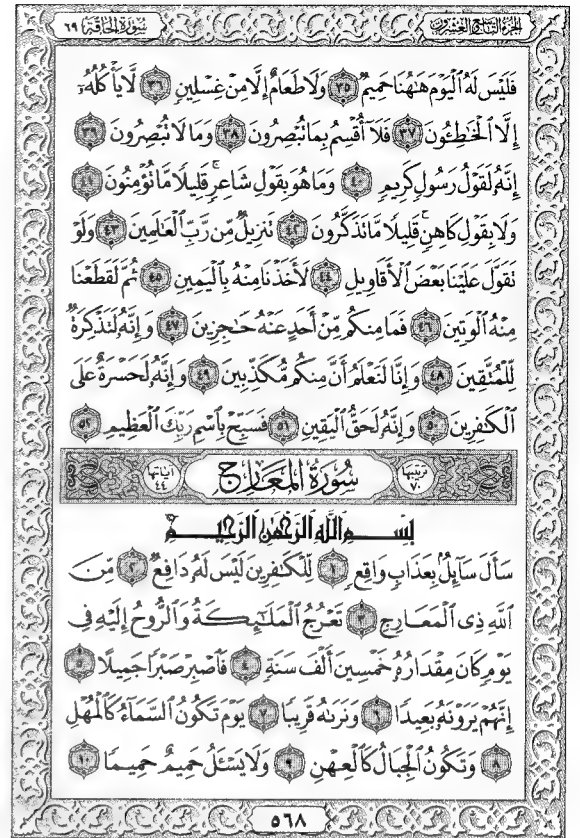 سُورَةُ الحَاقَّةِ ٦٩
الجزء التاسع والعشرون
فَلَيْسَ لَهُ ٱلْيَوْمَ هَٰهُنَا حَمِيمٌ ٣٥ وَلَا طَعَامٌ إِلَّا مِنْ غِسْلِينٍ ٣٦ لَّا يَأْكُلُهُۥٓ
إِلَّا ٱلْخَٰطِـُٔونَ ٣٧ فَلَآ أُقْسِمُ بِمَا تُبْصِرُونَ ٣٨ وَمَا لَا تُبْصِرُونَ ٣٩
إِنَّهُۥ لَقَوْلُ رَسُولٍ كَرِيمٍ ٤٠ وَمَا هُوَ بِقَوْلِ شَاعِرٍ ۚ قَلِيلًا مَّا تُؤْمِنُونَ ٤١
وَلَا بِقَوْلِ كَاهِنٍ ۚ قَلِيلًا مَّا تَذَكَّرُونَ ٤٢ تَنزِيلٌ مِّن رَّبِّ ٱلْعَٰلَمِينَ ٤٣ وَلَوْ
تَقَوَّلَ عَلَيْنَا بَعْضَ ٱلْأَقَاوِيلِ ٤٤ لَأَخَذْنَا مِنْهُ بِٱلْيَمِينِ ٤٥ ثُمَّ لَقَطَعْنَا
مِنْهُ ٱلْوَتِينَ ٤٦ فَمَا مِنكُم مِّنْ أَحَدٍ عَنْهُ حَٰجِزِينَ ٤٧ وَإِنَّهُۥ لَتَذْكِرَةٌ
لِّلْمُتَّقِينَ ٤٨ وَإِنَّا لَنَعْلَمُ أَنَّ مِنكُم مُّكَذِّبِينَ ٤٩ وَإِنَّهُۥ لَحَسْرَةٌ عَلَى
ٱلْكَٰفِرِينَ ٥٠ وَإِنَّهُۥ لَحَقُّ ٱلْيَقِينِ ٥١ فَسَبِّحْ بِٱسْمِ رَبِّكَ ٱلْعَظِيمِ ٥٢
ترتيبها ٧٠ سُورَةُ المَعَارِجِ آياتها ٤٤
بِسْمِ ٱللَّهِ ٱلرَّحْمَٰنِ ٱلرَّحِيمِ
سَأَلَ سَآئِلٌۢ بِعَذَابٍ وَاقِعٍ ١ لِّلْكَٰفِرِينَ لَيْسَ لَهُۥ دَافِعٌ ٢ مِّنَ
ٱللَّهِ ذِى ٱلْمَعَارِجِ ٣ تَعْرُجُ ٱلْمَلَٰٓئِكَةُ وَٱلرُّوحُ إِلَيْهِ فِى
يَوْمٍ كَانَ مِقْدَارُهُۥ خَمْسِينَ أَلْفَ سَنَةٍ ٤ فَٱصْبِرْ صَبْرًا جَمِيلًا ٥
إِنَّهُمْ يَرَوْنَهُۥ بَعِيدًا ٦ وَنَرَىٰهُ قَرِيبًا ٧ يَوْمَ تَكُونُ ٱلسَّمَآءُ كَٱلْمُهْلِ
٨ وَتَكُونُ ٱلْجِبَالُ كَٱلْعِهْنِ ٩ وَلَا يَسْـَٔلُ حَمِيمٌ حَمِيمًا ١٠
٥٦٨